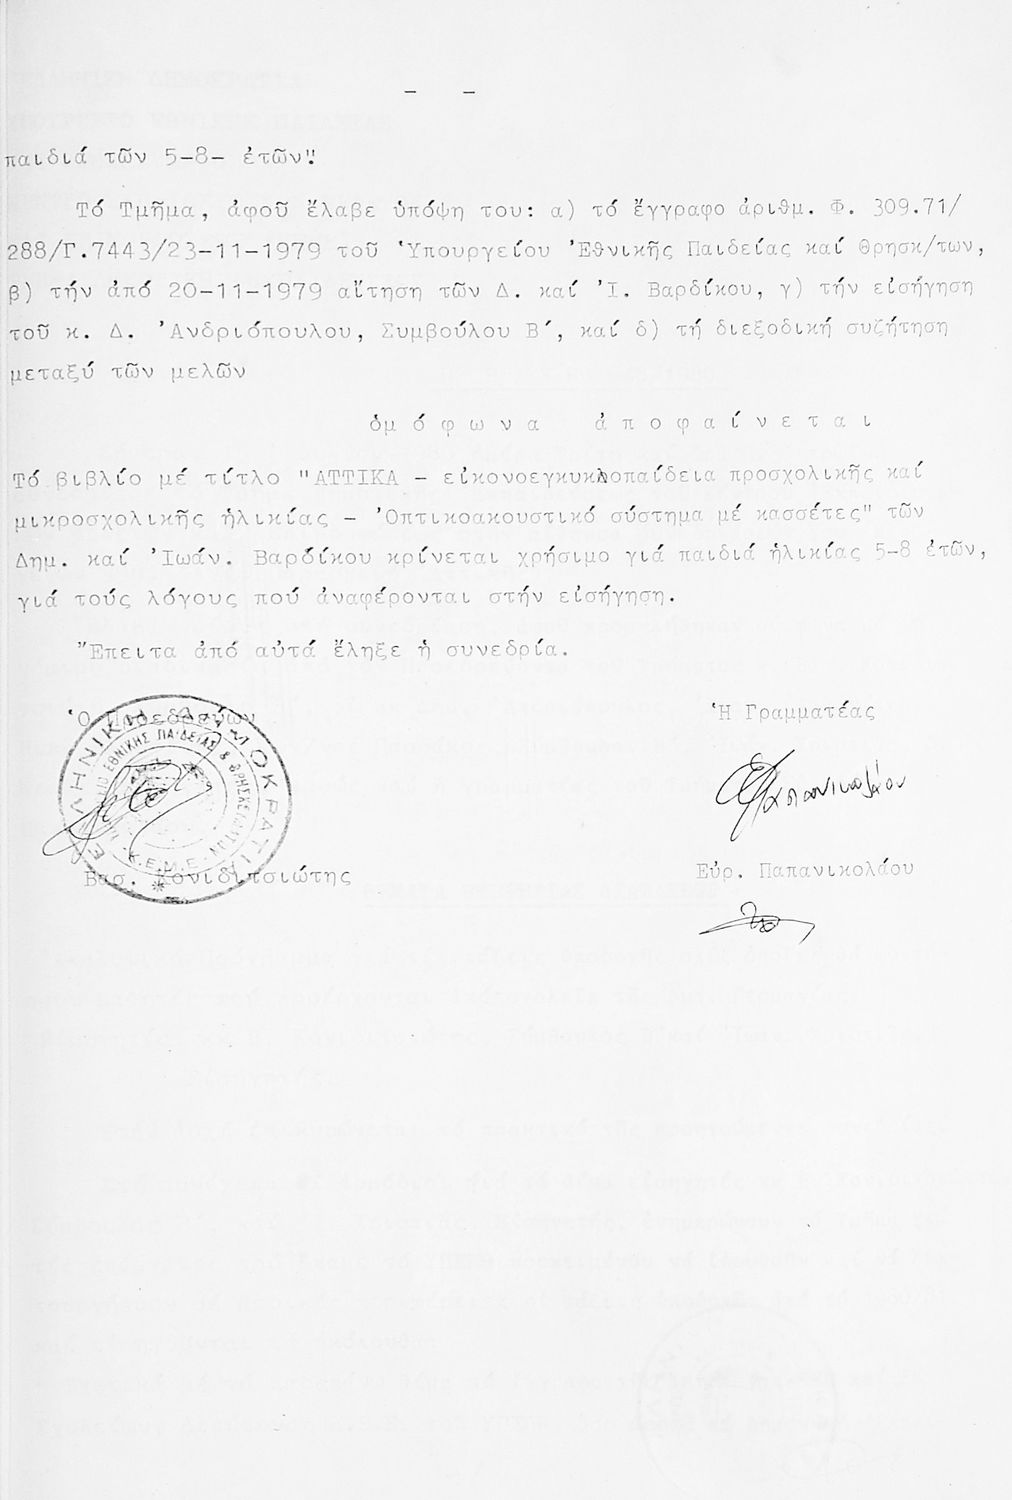 - -
παιδιά τῶν 5-8- ἐτῶν".
Τό Τμῆμα, ἀφοῦ ἔλαβε ὑπόψη του: α) τό ἔγγραφο ἀριθμ. Φ. 309.71/
288/Γ.7443/23-11-1979 τοῦ Ὑπουργείου Ἐθνικῆς Παιδείας καί Θρησκ/των,
β) τήν ἀπό 20-11-1979 αἴτηση τῶν Δ. καί Ἰ. Βαρδίκου, γ) τήν εἰσήγηση
τοῦ κ. Δ. Ἀνδριόπουλου, Συμβούλου Β´, καί δ) τή διεξοδική συζήτηση
μεταξύ τῶν μελῶν
ὁμόφωνα ἀποφαίνεται
Τό βιβλίο μέ τίτλο "ΑΤΤΙΚΑ - εἰκονοεγκυκλοπαίδεια προσχολικῆς καί
μικροσχολικῆς ἡλικίας - Ὀπτικοακουστικό σύστημα μέ κασσέτες" τῶν
Δημ. καί Ἰωάν. Βαρδίκου κρίνεται χρήσιμο γιά παιδιά ἡλικίας 5-8 ἐτῶν,
γιά τούς λόγους πού ἀναφέρονται στήν εἰσήγηση.
Ἔπειτα ἀπό αὐτά ἔληξε ἡ συνεδρία.
Ὁ Προεδρεύων Ἡ Γραμματέας
ΕΛΛΗΝΙΚΗ ΔΗΜΟΚΡΑΤΙΑ
ΕΘΝΙΚΗΣ ΠΑΙΔΕΙΑΣ & ΘΡΗΣΚΕΥΜΑΤΩΝ
Κ.Ε.Μ.Ε.
Παπανικολάου
Βασ. Κονιδιτσιώτης Εὐρ. Παπανικολάου